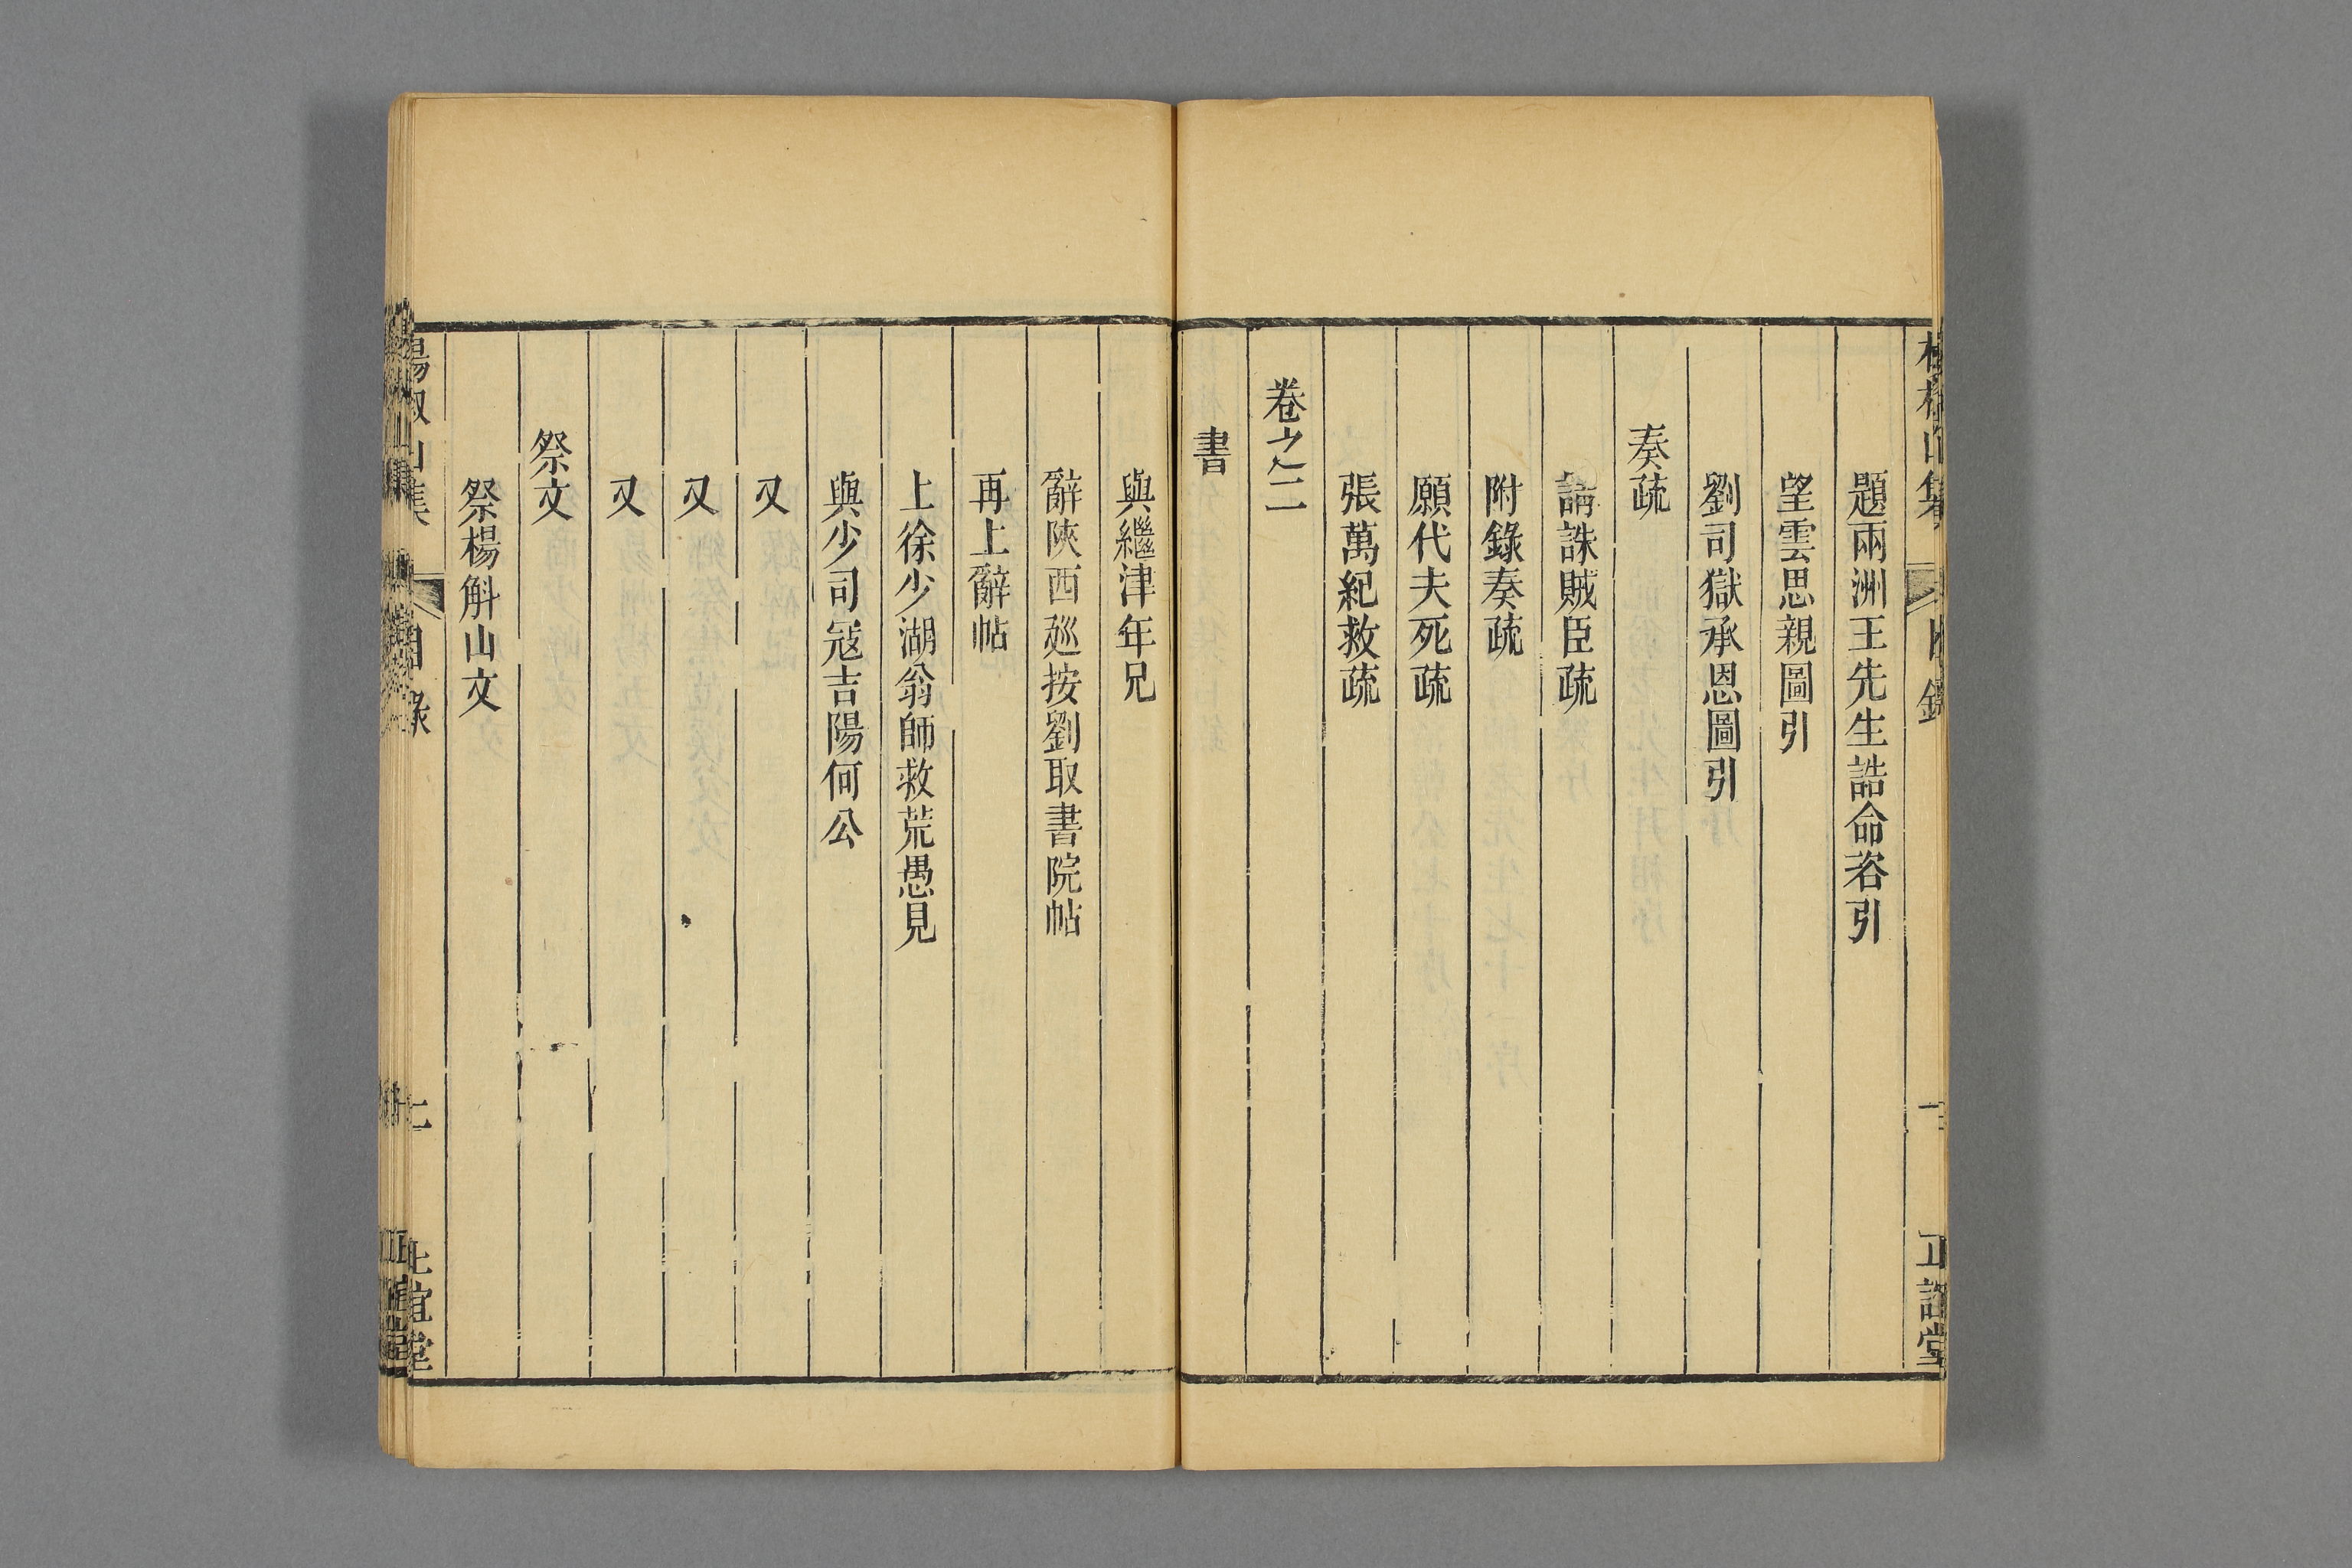 題兩洲王先生誥命峇引
望雲思親圖引
劉司獄承恩圖引
奏疏
請誅賊臣疏
附錄奏疏
願代夫死疏
張萬紀救疏
卷之二
書
與繼津年兄
辭陝西廵按劉取書院帖
再上辭帖
上徐少湖翁師救荒愚見
與少司寇吉陽何公
又
又
又
祭文
祭楊斛山文